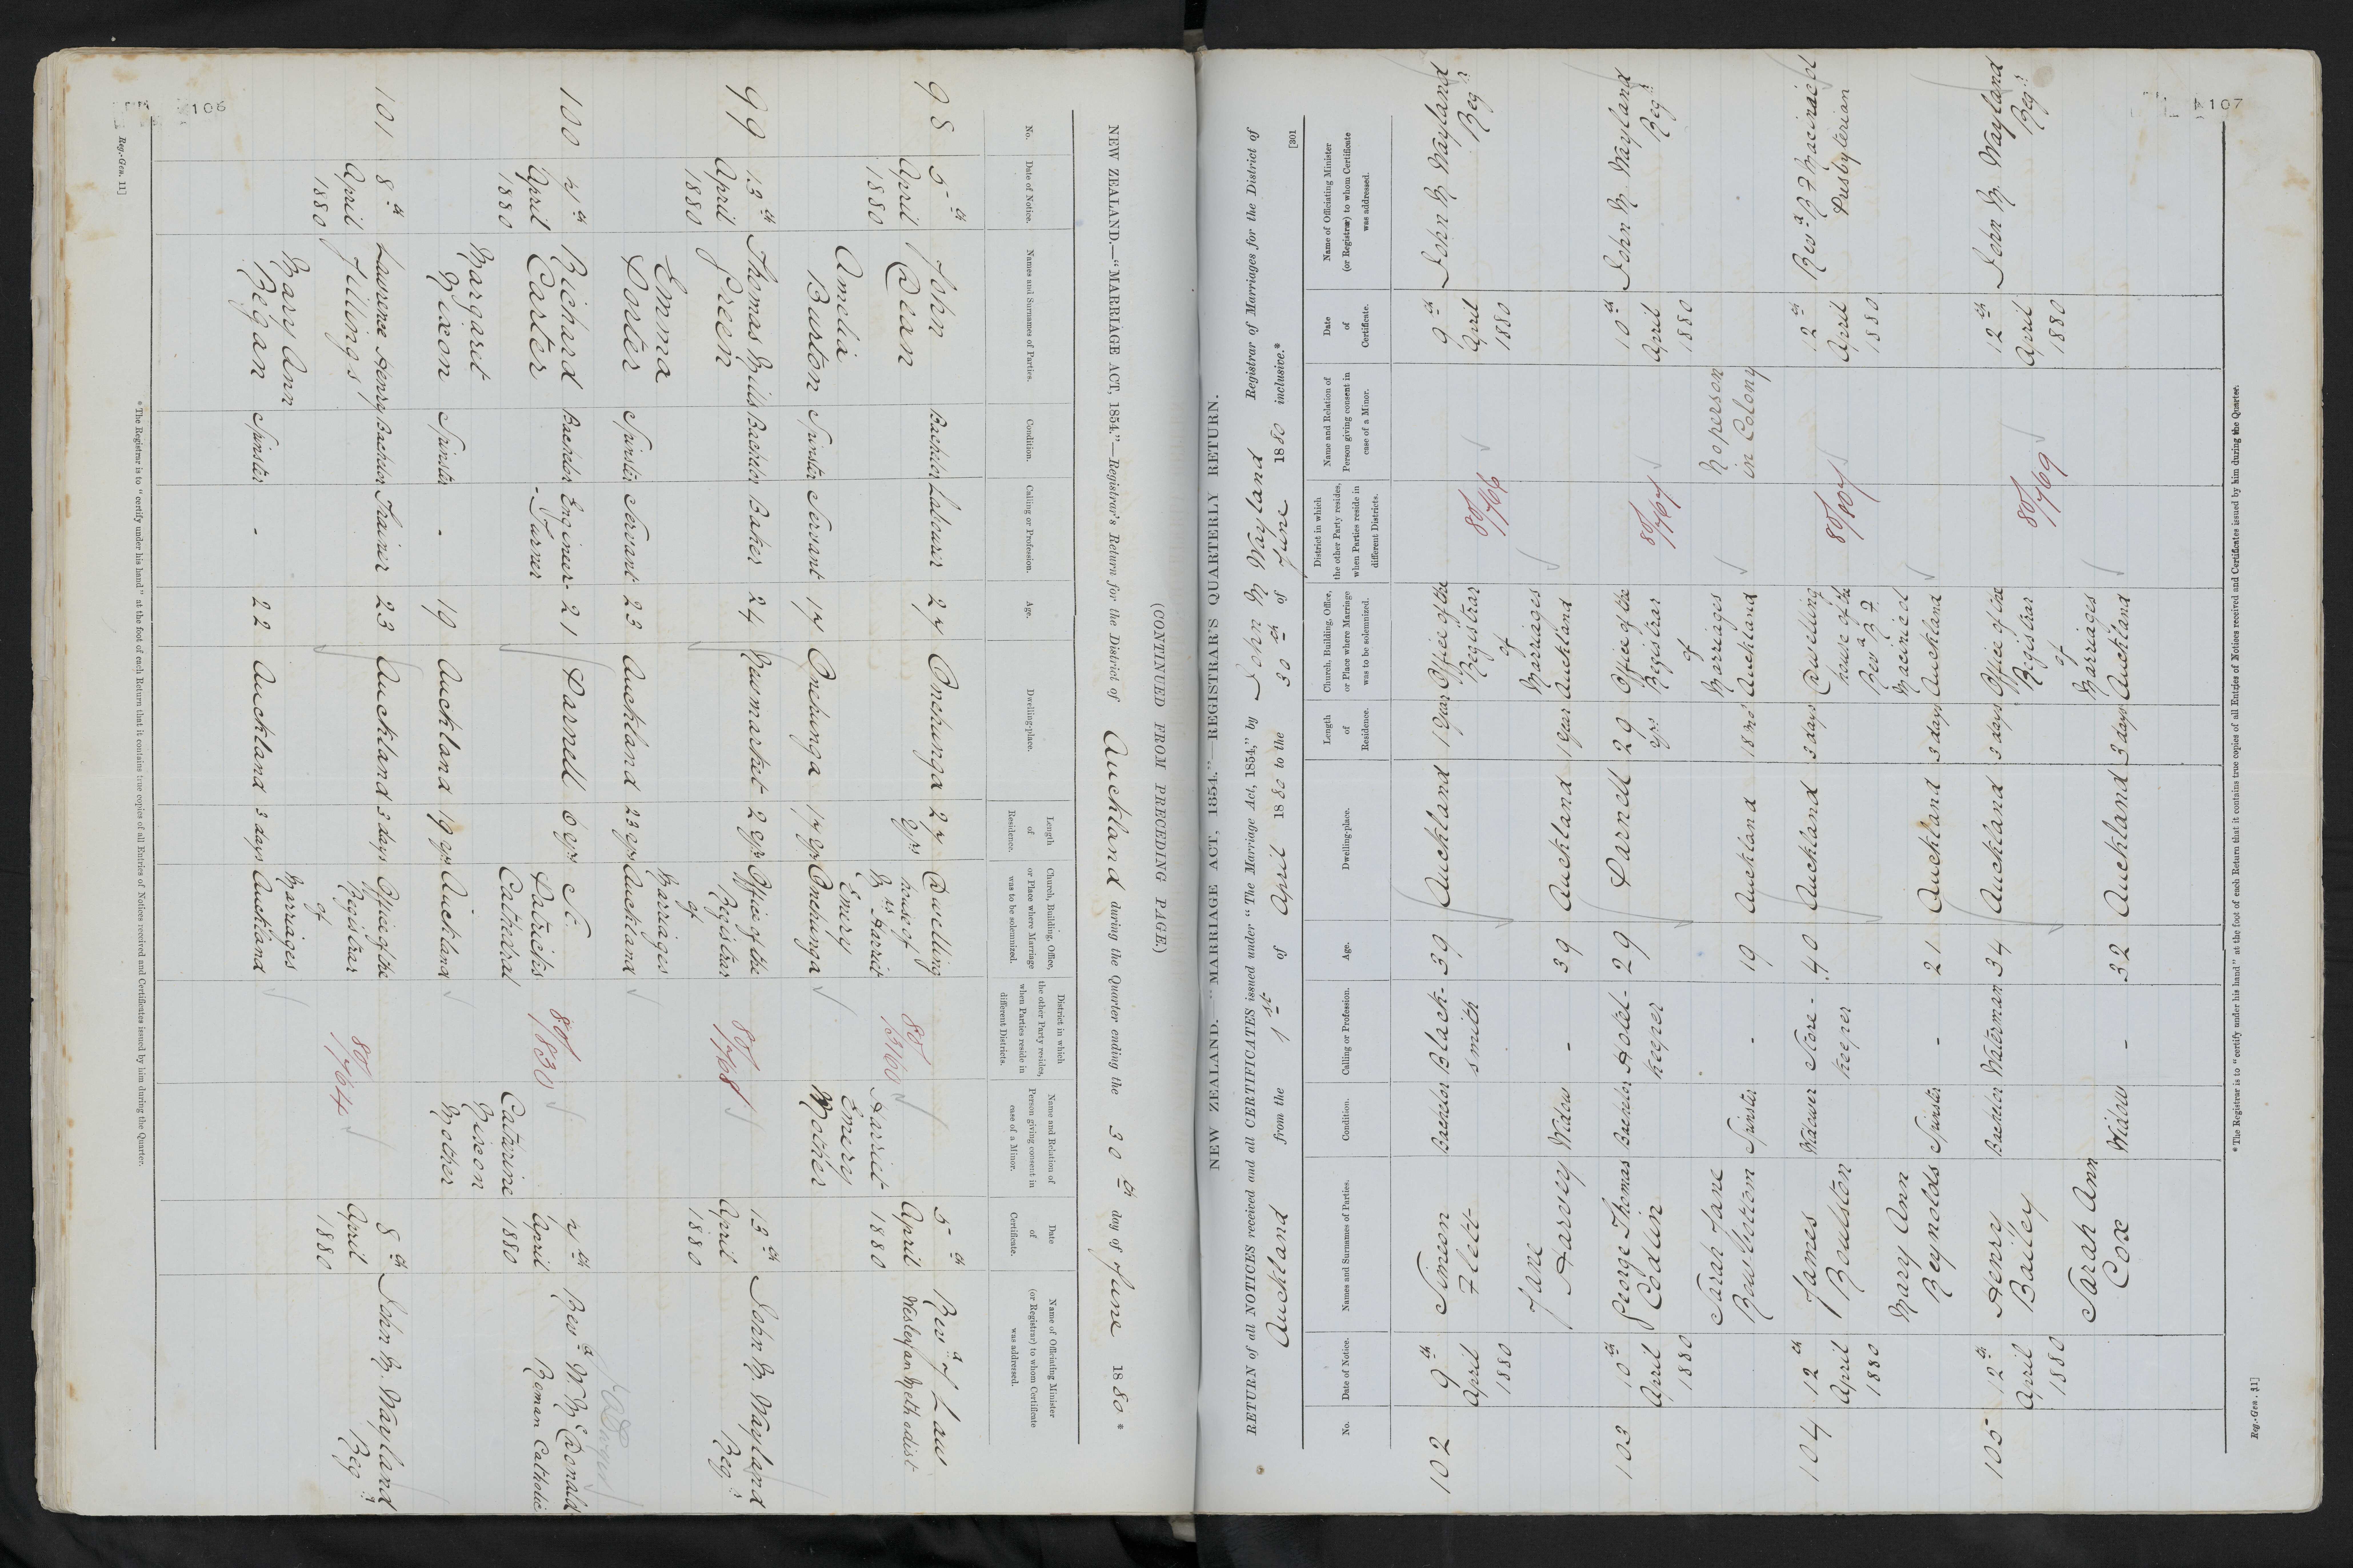 106
(CONTINUED FROM PRECEDING PAGE.)
NEW ZEALAND.—"MARRIAGE ACT, 1854."—Registrar's Return for the District of Auckland during the Quarter ending the 30th day of June 1880*
No.
Date of Notice.
Names and Surnames of Parties.
Condition.
Calling or Profession.
Age.
Dwelling-place.
Length of Residence.
Church, Building, Office, or Place where Marriage was to be solemnized.
District in which the other Party resides, when Parties reside in different Districts.
Name and Relation of Person giving consent in case of a Minor.
Date of Certificate.
Name of Officiating Minister (or Registrar) to whom Certificate was addressed.
98 5th April 1880
John Dean Bachelor Labourer 27 Onehunga 27 yrs
Amelia Burton Spinster Servant 17 Onehunga 17 yrs
Dwelling house of Mrs Harriet Emery Onehunga
80/1316
Harriet Emery Mother
5th April 1880
Revd J Law
Wesleyan Methodist
99 13th April 1880
Thomas Mills Green Bachelor Baker 24 Newmarket 2 yrs
Emma Porter Spinster Servant 23 Auckland 23 yrs
Office of the Registrar of Marriages Auckland
80/768
13th April 1880
John M. Wayland
Regr
100 7th April 1880
Richard Carter Bachelor Engineer-Turner 21 Parnell 6 yrs
Margaret Nixon Spinster - 19 Auckland 19 yrs
St. Patricks Cathedral Auckland
80/830
Catherine Nixon Mother
7th April 1880
Revd W. McDonald
Roman Catholic
101 8th April 1880
Laurence Henry Jillings Bachelor Trainer 23 Auckland 3 days
Mary Ann Regan Spinster - 22 Auckland 3 days
Office of the Registrar of Marriages Auckland
80/764
8th April 1880
John M. Wayland
Regr
* The Registrar is to "certify under his hand" at the foot of each Return that it contains true copies of all Entries of Notices received and Certificates issued by him during the Quarter.
Reg.-Gen. 11]
107
[301
NEW ZEALAND.—"MARRIAGE ACT, 1854."—REGISTRAR'S QUARTERLY RETURN.
RETURN of all NOTICES received and all CERTIFICATES issued under "The Marriage Act, 1854," by John M Wayland Registrar of Marriages for the District of
Auckland from the 1st of April 1880 to the 30th of June 1880 inclusive.*
No.
Date of Notice.
Names and Surnames of Parties.
Condition.
Calling or Profession.
Age.
Dwelling-place.
Length of Residence.
Church, Building, Office, or Place where Marriage was to be solemnized.
District in which the other Party resides, when Parties reside in different Districts.
Name and Relation of Person giving consent in case of a Minor.
Date of Certificate.
Name of Officiating Minister (or Registrar) to whom Certificate was addressed.
102 9th April 1880
Simeon Flett Bachelor Blacksmith 39 Auckland 1 year
Jane Harvey Widow - 39 Auckland 1 year
Office of the Registrar of Marriages Auckland
80/766
9th April 1880
John M Wayland
Regr
103 10th April 1880
George Thomas Codlin Bachelor Hotel-keeper 29 Parnell 29 yrs
Sarah Jane Rowbottom Spinster - 19 Auckland 18 mos
Office of the Registrar of Marriages Auckland
80/767
No person in Colony
10th April 1880
John M Wayland
Regr
104 12th April 1880
James Roulston Widower Store-keeper 40 Auckland 3 days
Mary Ann Reynolds Spinster - 21 Auckland 3 days
Dwelling house of the Revd R. F. Macinicol Auckland
80/807
12th April 1880
Revd R F Macinicol
Presbyterian
105 12th April 1880
Henry Bailey Bachelor Waterman 34 Auckland 3 days
Sarah Ann Cox Widow - 32 Auckland 3 days
Office of the Registrar of Marriages Auckland
80/769
12th April 1880
John M. Wayland
Regr
* The Registrar is to "certify under his hand" at the foot of each Return that it contains true copies of all Entries of Notices received and Certificates issued by him during the Quarter.
Reg.-Gen. 31]